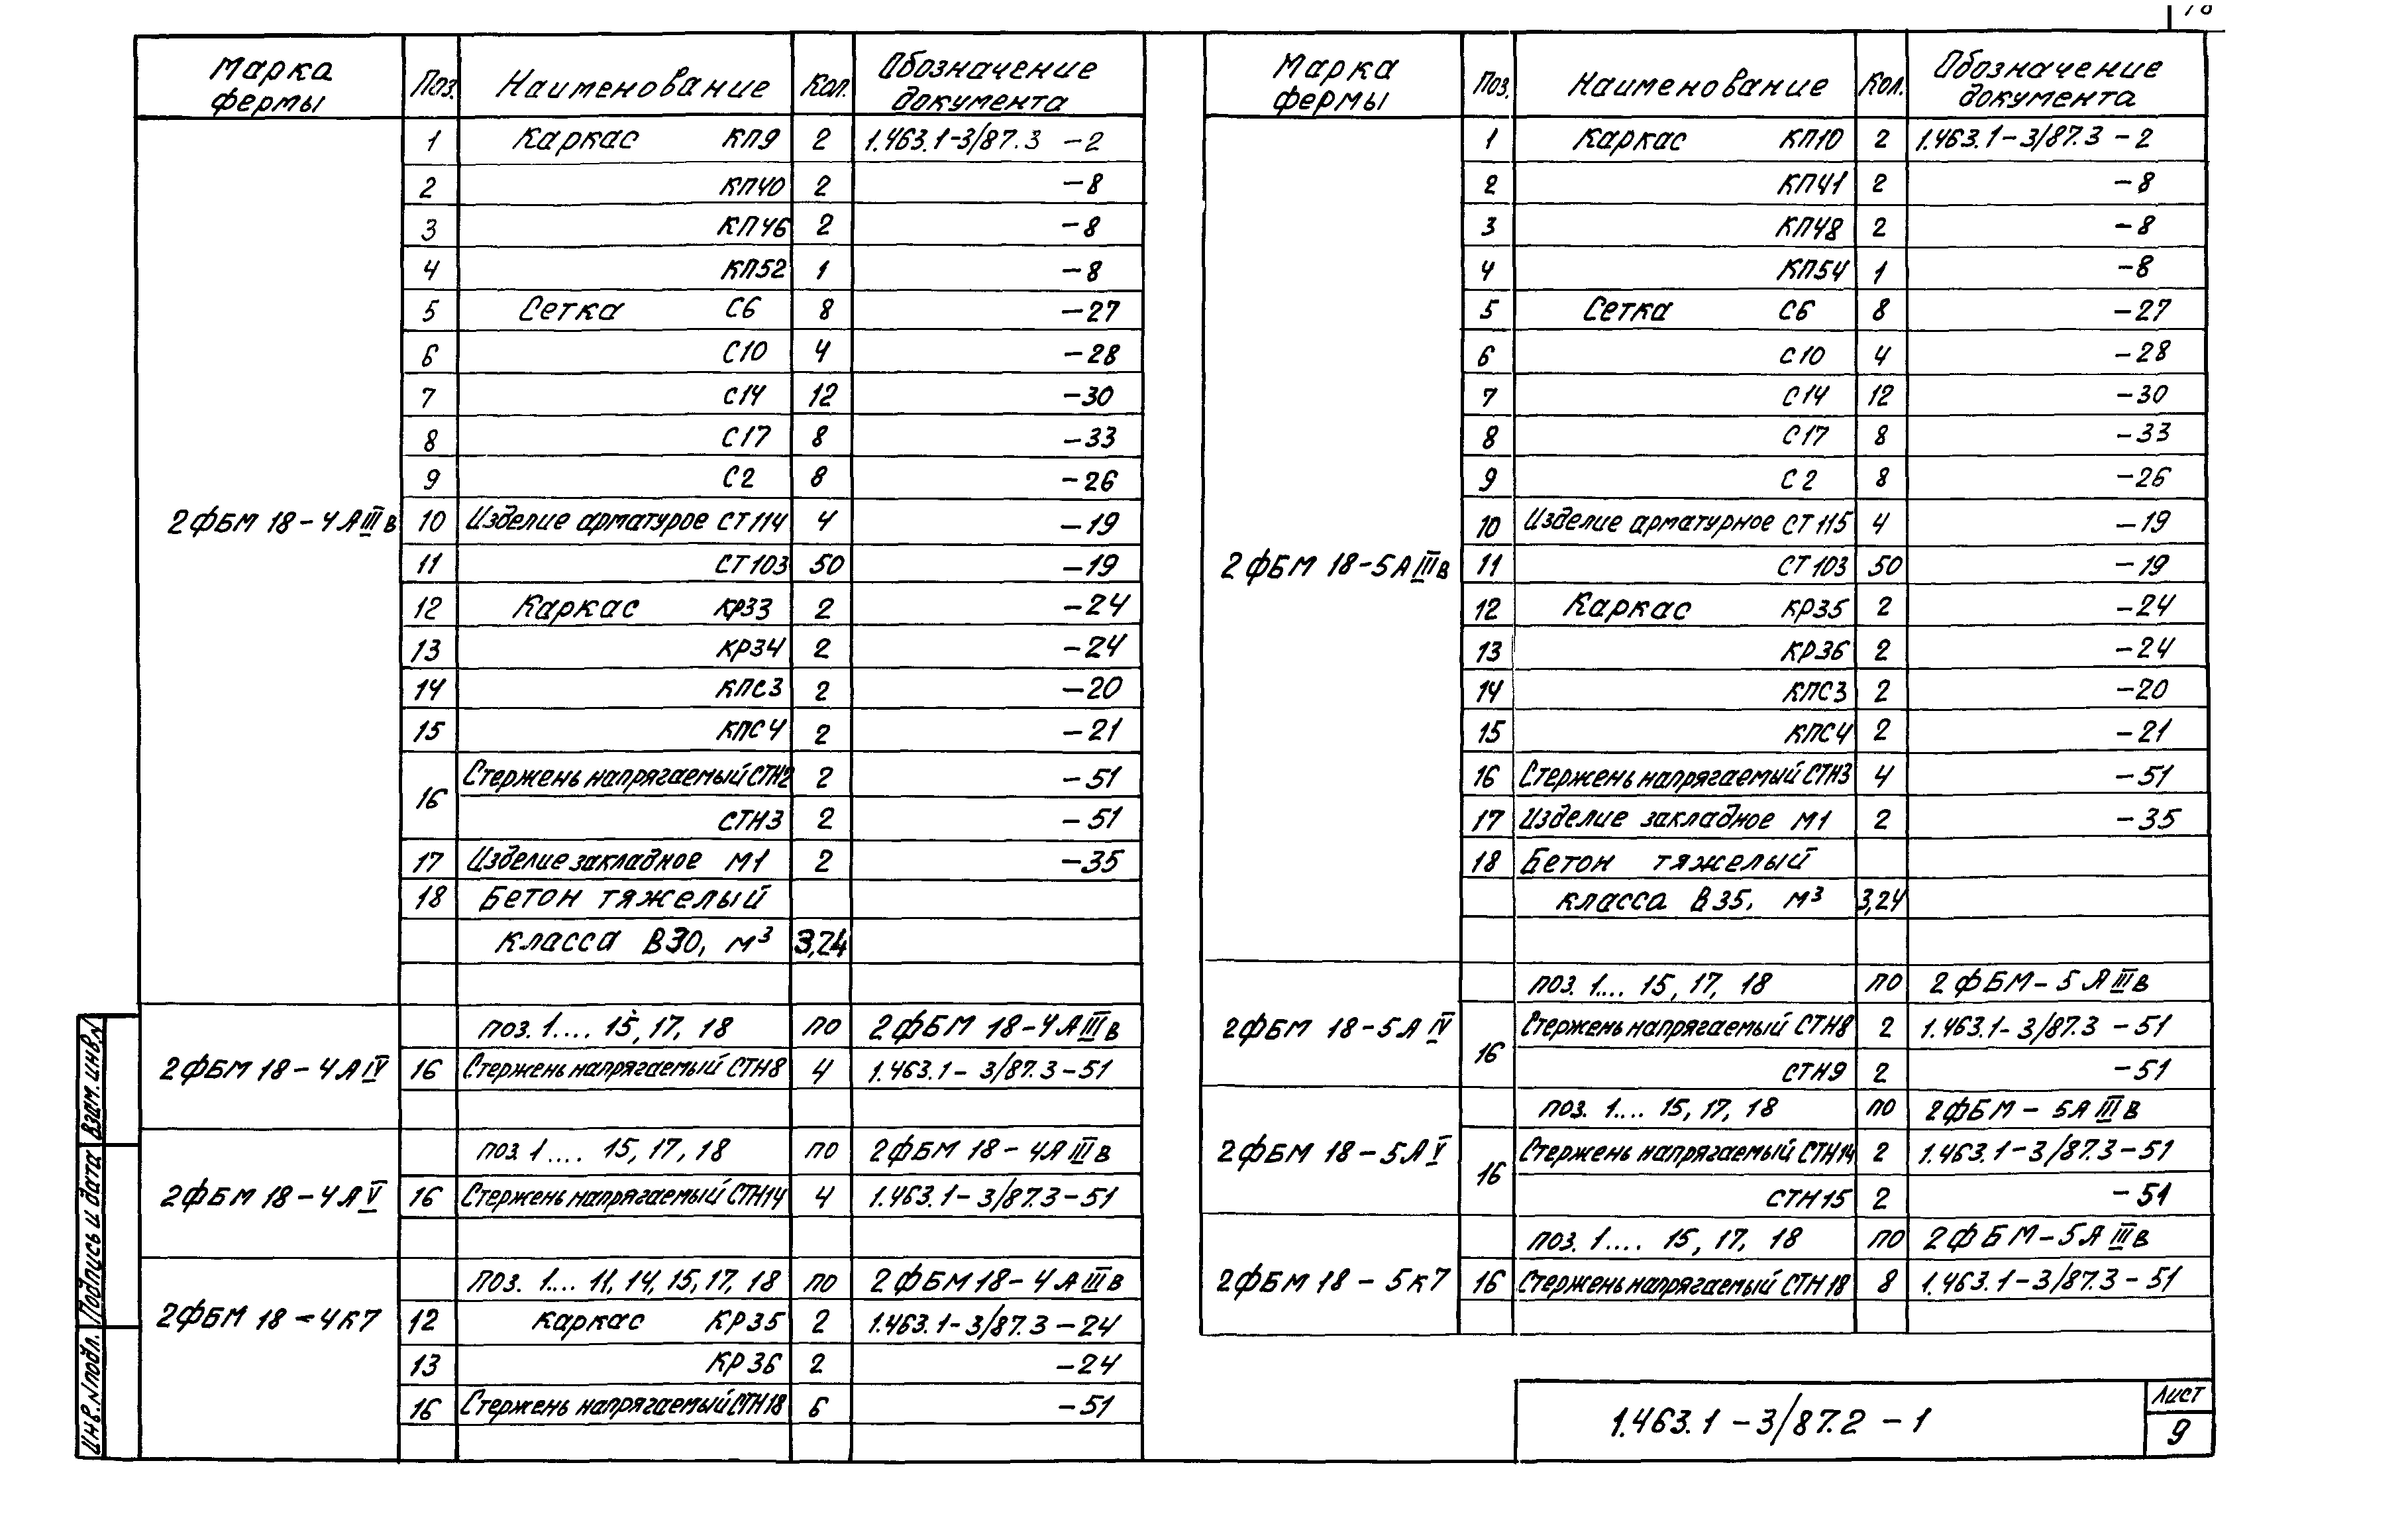 Марка фермы Поз. Наименование Кол. Обозначение документа
2ФБМ 18-4АIIIв
1 Каркас КП9 2 1.463.1-3/87.3 -2
2 КП40 2 -8
3 КП46 2 -8
4 КП52 1 -8
5 Сетка С6 8 -27
6 С10 4 -28
7 С14 12 -30
8 С17 8 -33
9 С2 8 -26
10 Изделие арматурое СТ114 4 -19
11 СТ103 50 -19
12 Каркас КР33 2 -24
13 КР34 2 -24
14 КПС3 2 -20
15 КПС4 2 -21
16 Стержень напрягаемый СТН2 2 -51
СТН3 2 -51
17 Изделие закладное М1 2 -35
18 Бетон тяжелый
класса В30, м³ 3,24
2ФБМ 18-4АIV
поз. 1.... 15, 17, 18 по 2ФБМ 18-4АIIIв
16 Стержень напрягаемый СТН8 4 1.463.1-3/87.3-51
2ФБМ 18-4АV
поз. 1.... 15, 17, 18 по 2ФБМ 18-4АIIIв
16 Стержень напрягаемый СТН14 4 1.463.1-3/87.3-51
2ФБМ 18-4К7
поз. 1... 11, 14, 15, 17, 18 по 2ФБМ 18-4АIIIв
12 Каркас КР35 2 1.463.1-3/87.3-24
13 КР36 2 -24
16 Стержень напрягаемый СТН18 6 -51
Марка фермы Поз. Наименование Кол. Обозначение документа
2ФБМ 18-5АIIIв
1 Каркас КП10 2 1.463.1-3/87.3 -2
2 КП41 2 -8
3 КП48 2 -8
4 КП54 1 -8
5 Сетка С6 8 -27
6 С10 4 -28
7 С14 12 -30
8 С17 8 -33
9 С2 8 -26
10 Изделие арматурное СТ115 4 -19
11 СТ103 50 -19
12 Каркас КР35 2 -24
13 КР36 2 -24
14 КПС3 2 -20
15 КПС4 2 -21
16 Стержень напрягаемый СТН3 4 -51
17 Изделие закладное М1 2 -35
18 Бетон тяжелый
класса В35, м³ 3,24
2ФБМ 18-5АIV
поз. 1.... 15, 17, 18 по 2ФБМ-5АIIIв
16 Стержень напрягаемый СТН8 2 1.463.1-3/87.3 -51
СТН9 2 -51
2ФБМ 18-5АV
поз. 1.... 15, 17, 18 по 2ФБМ-5АIIIв
16 Стержень напрягаемый СТН14 2 1.463.1-3/87.3-51
СТН15 2 -51
2ФБМ 18-5К7
поз. 1.... 15, 17, 18 по 2ФБМ-5АIIIв
16 Стержень напрягаемый СТН18 8 1.463.1-3/87.3-51
1.463.1-3/87.2-1
Лист
9
Инв.N подл. Подпись и дата Взам.инв.N